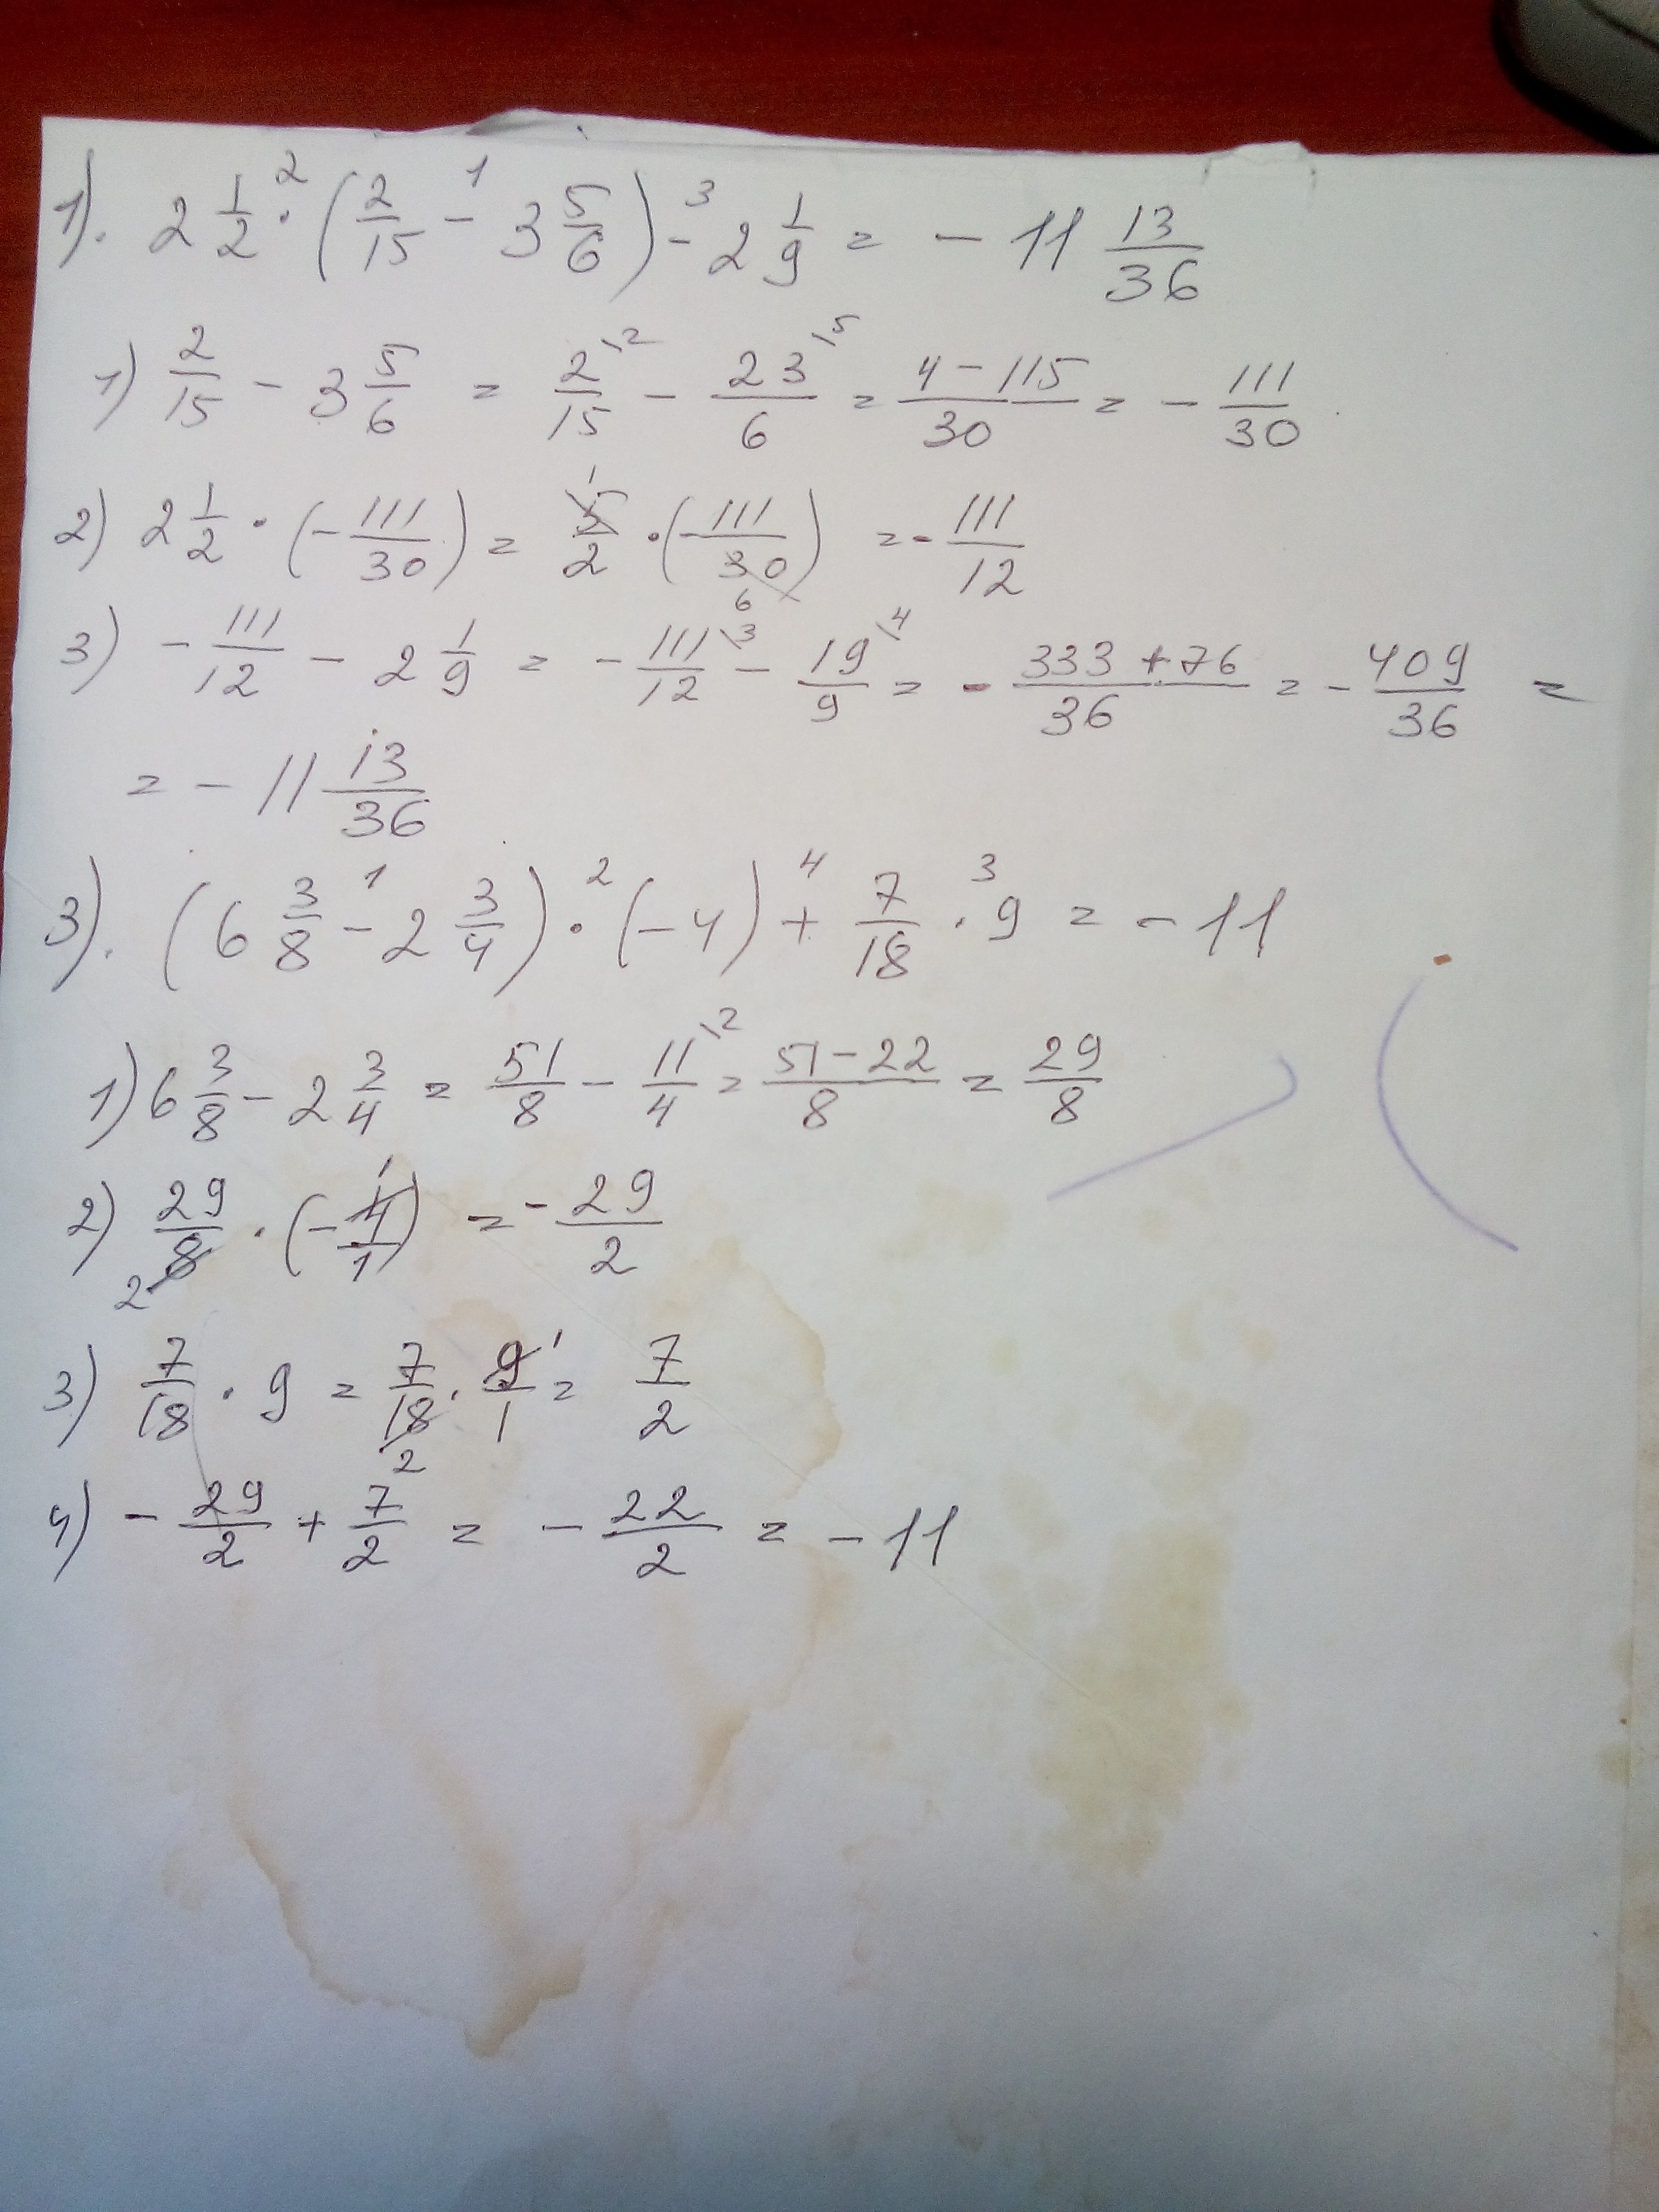 1). 2 1/2 ·² (2/15 -¹ 3 5/6) -³ 2 1/9 = - 11 13/36
1) 2/15 - 3 5/6 = 2/15 \2 - 23/6 \5 = 4 - 115/30 = - 111/30
2) 2 1/2 · (- 111/30) = 5/2 1 · (- 111/30 6) = - 111/12
3) - 111/12 - 2 1/9 = - 111/12 \3 - 19/9 \4 = - 333 + 76/36 = - 409/36 =
= - 11 13/36
3). (6 3/8 -¹ 2 3/4) ·² (-4) +⁴ 7/18 ·³ 9 = - 11
1) 6 3/8 - 2 3/4 = 51/8 - 11/4 \2 = 51 - 22/8 = 29/8
2) 29/8 2 · (- 4/1 1) = - 29/2
3) 7/18 · 9 = 7/18 2 · 9/1 1 = 7/2
4) - 29/2 + 7/2 = - 22/2 = - 11